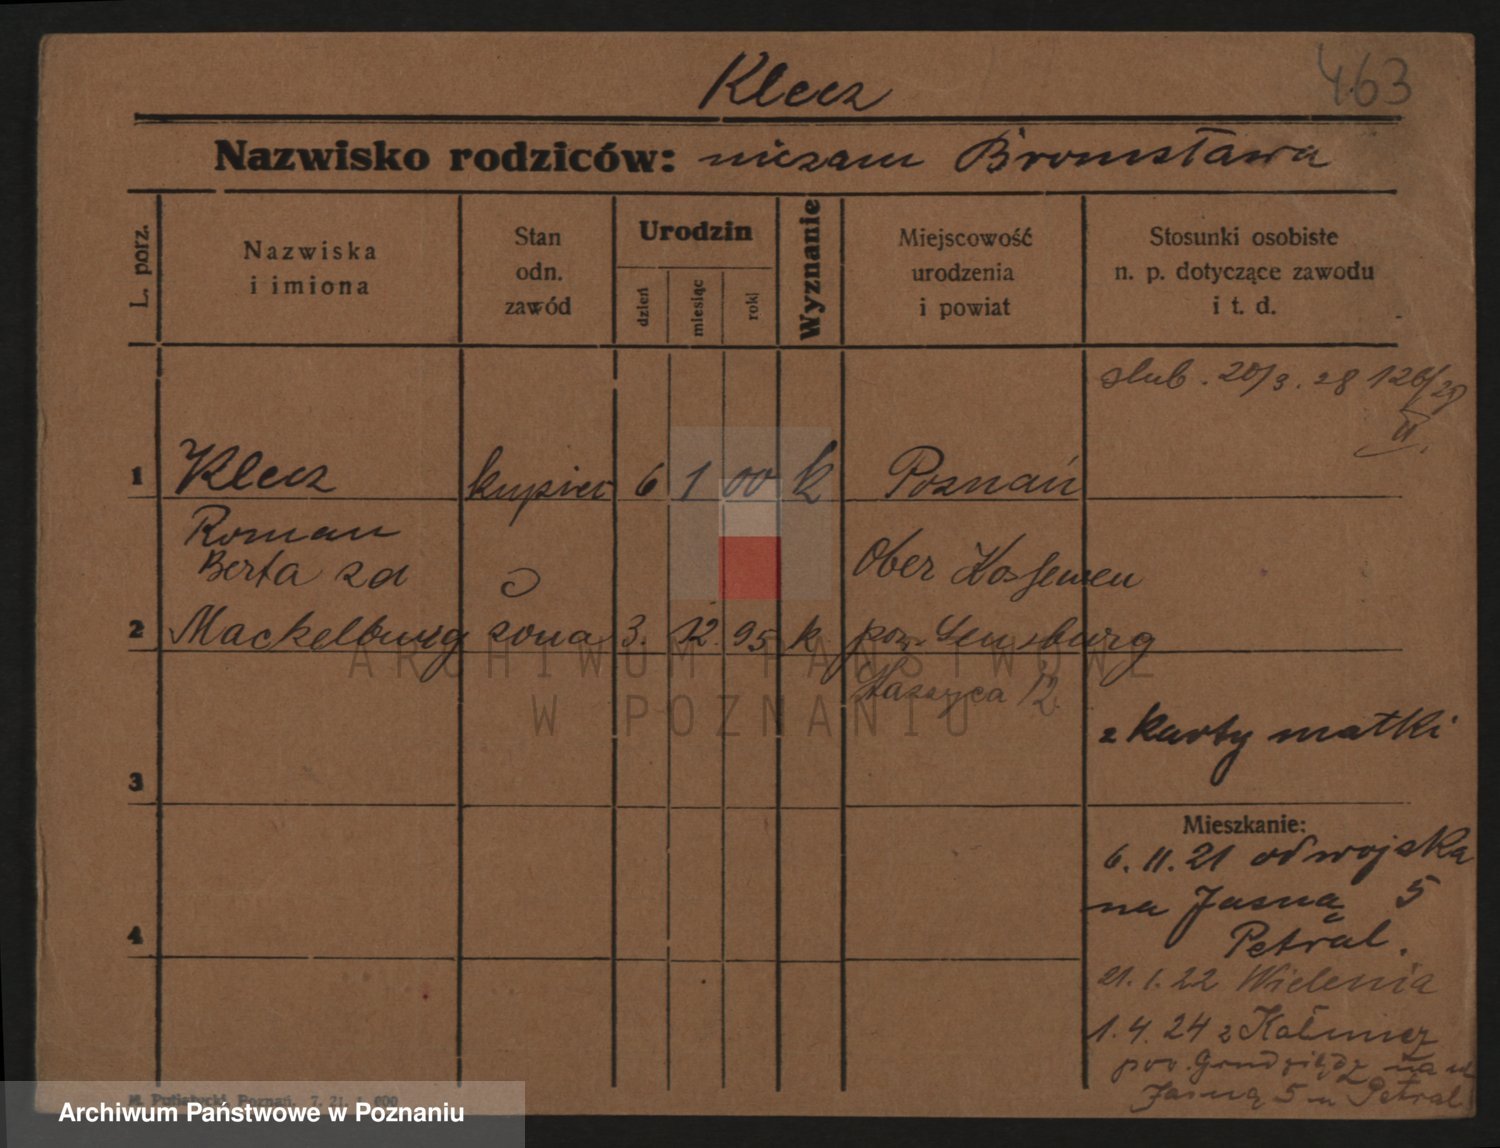 Klecz
463
Nazwisko rodziców: niezam Bronisława
L. porz.
Nazwiska
i imiona
Stan
odn.
zawód
Urodzin
dzień
miesiąc
rok
Wyznanie
Miejscowość
urodzenia
i powiat
Stosunki osobiste
n. p. dotyczące zawodu
i t. d.
slub. 20/3. 28 126/28
II.
1 Klecz kupiec 6 1 00 k Poznań
Roman
Berta zd Ober Kossewen
2 Mackelburg żona 3. 12. 95 k pow. Sensburg
12
z karty matki
3
Mieszkanie:
6. 11. 21 od wojska
na Jasną 5
4
Petral.
21. 1. 22 Wielenia
1. 4. 24 z
pow. Grudziądz na ul
Jasną 5 u Petral
M. Putiatycki, Poznań. 7. 21. 600
ARCHIWUM PAŃSTWOWE
W POZNANIU
Archiwum Państwowe w Poznaniu